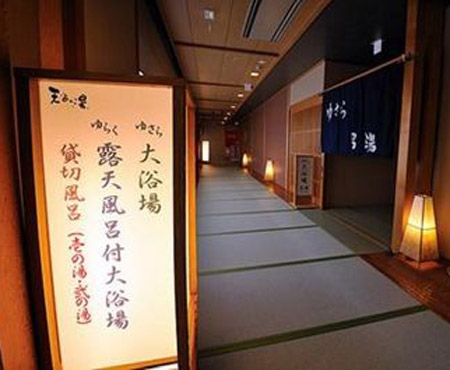 ゆさら
大浴場
ゆらく
露天風呂付大浴場
貸切風呂（壱の湯・弐の湯）
ゆさら